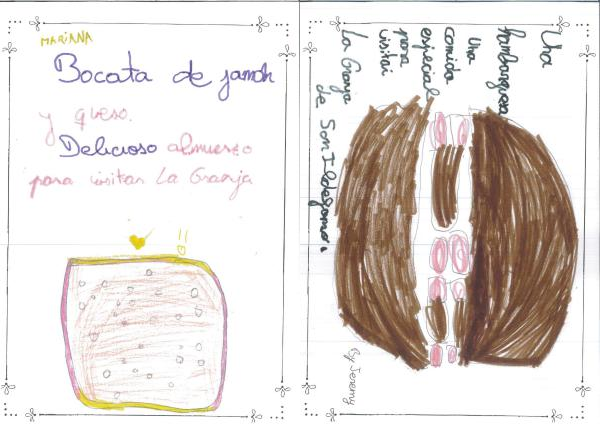 MARIANA
Bocata de jamón
y queso.
Delicioso almuerzo
para visitar La Granja
Una
hamburguesa
Una
comida
especial
para
visitar
La Granja
de San Ildefonso.
By Jeremy